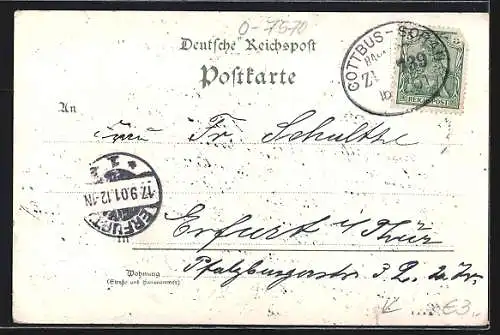 O-7570
Deutsche Reichspost
Postkarte
COTTBUS-SORAU
BAHNPOST
ZUG 739
5
REICHSPOST
An
Frau Fr. Schulthe
ERFURT
* 1 *
17.9.01.12-1N
Erfurt i/Thür
Pfalzburgerstr. 3
Wohnung
(Straße und Hausnummer)
€3